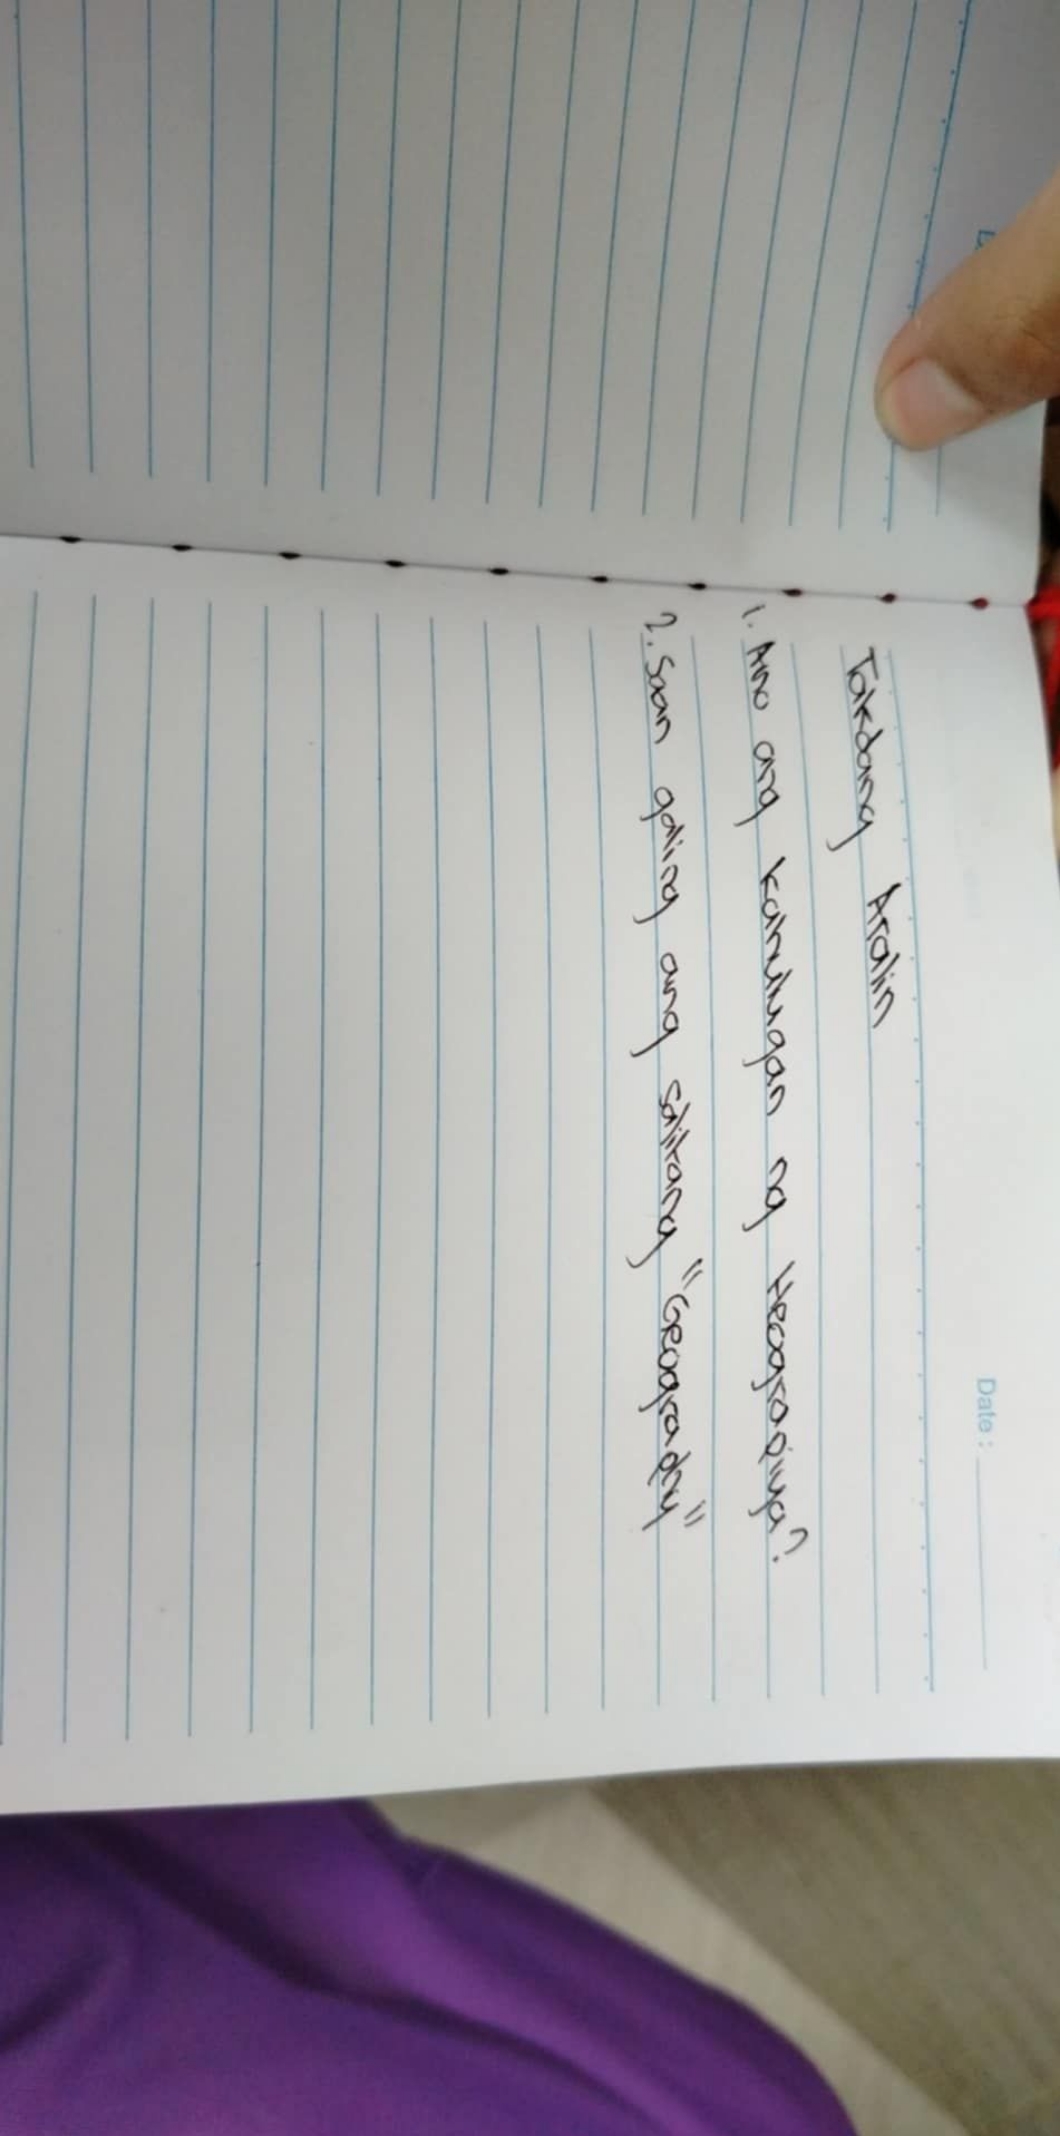 Date:
Takdang Aralin
1. Ano ang kahulugan ng Heograpiya?
2. Saan galing ang salitang "Geography"